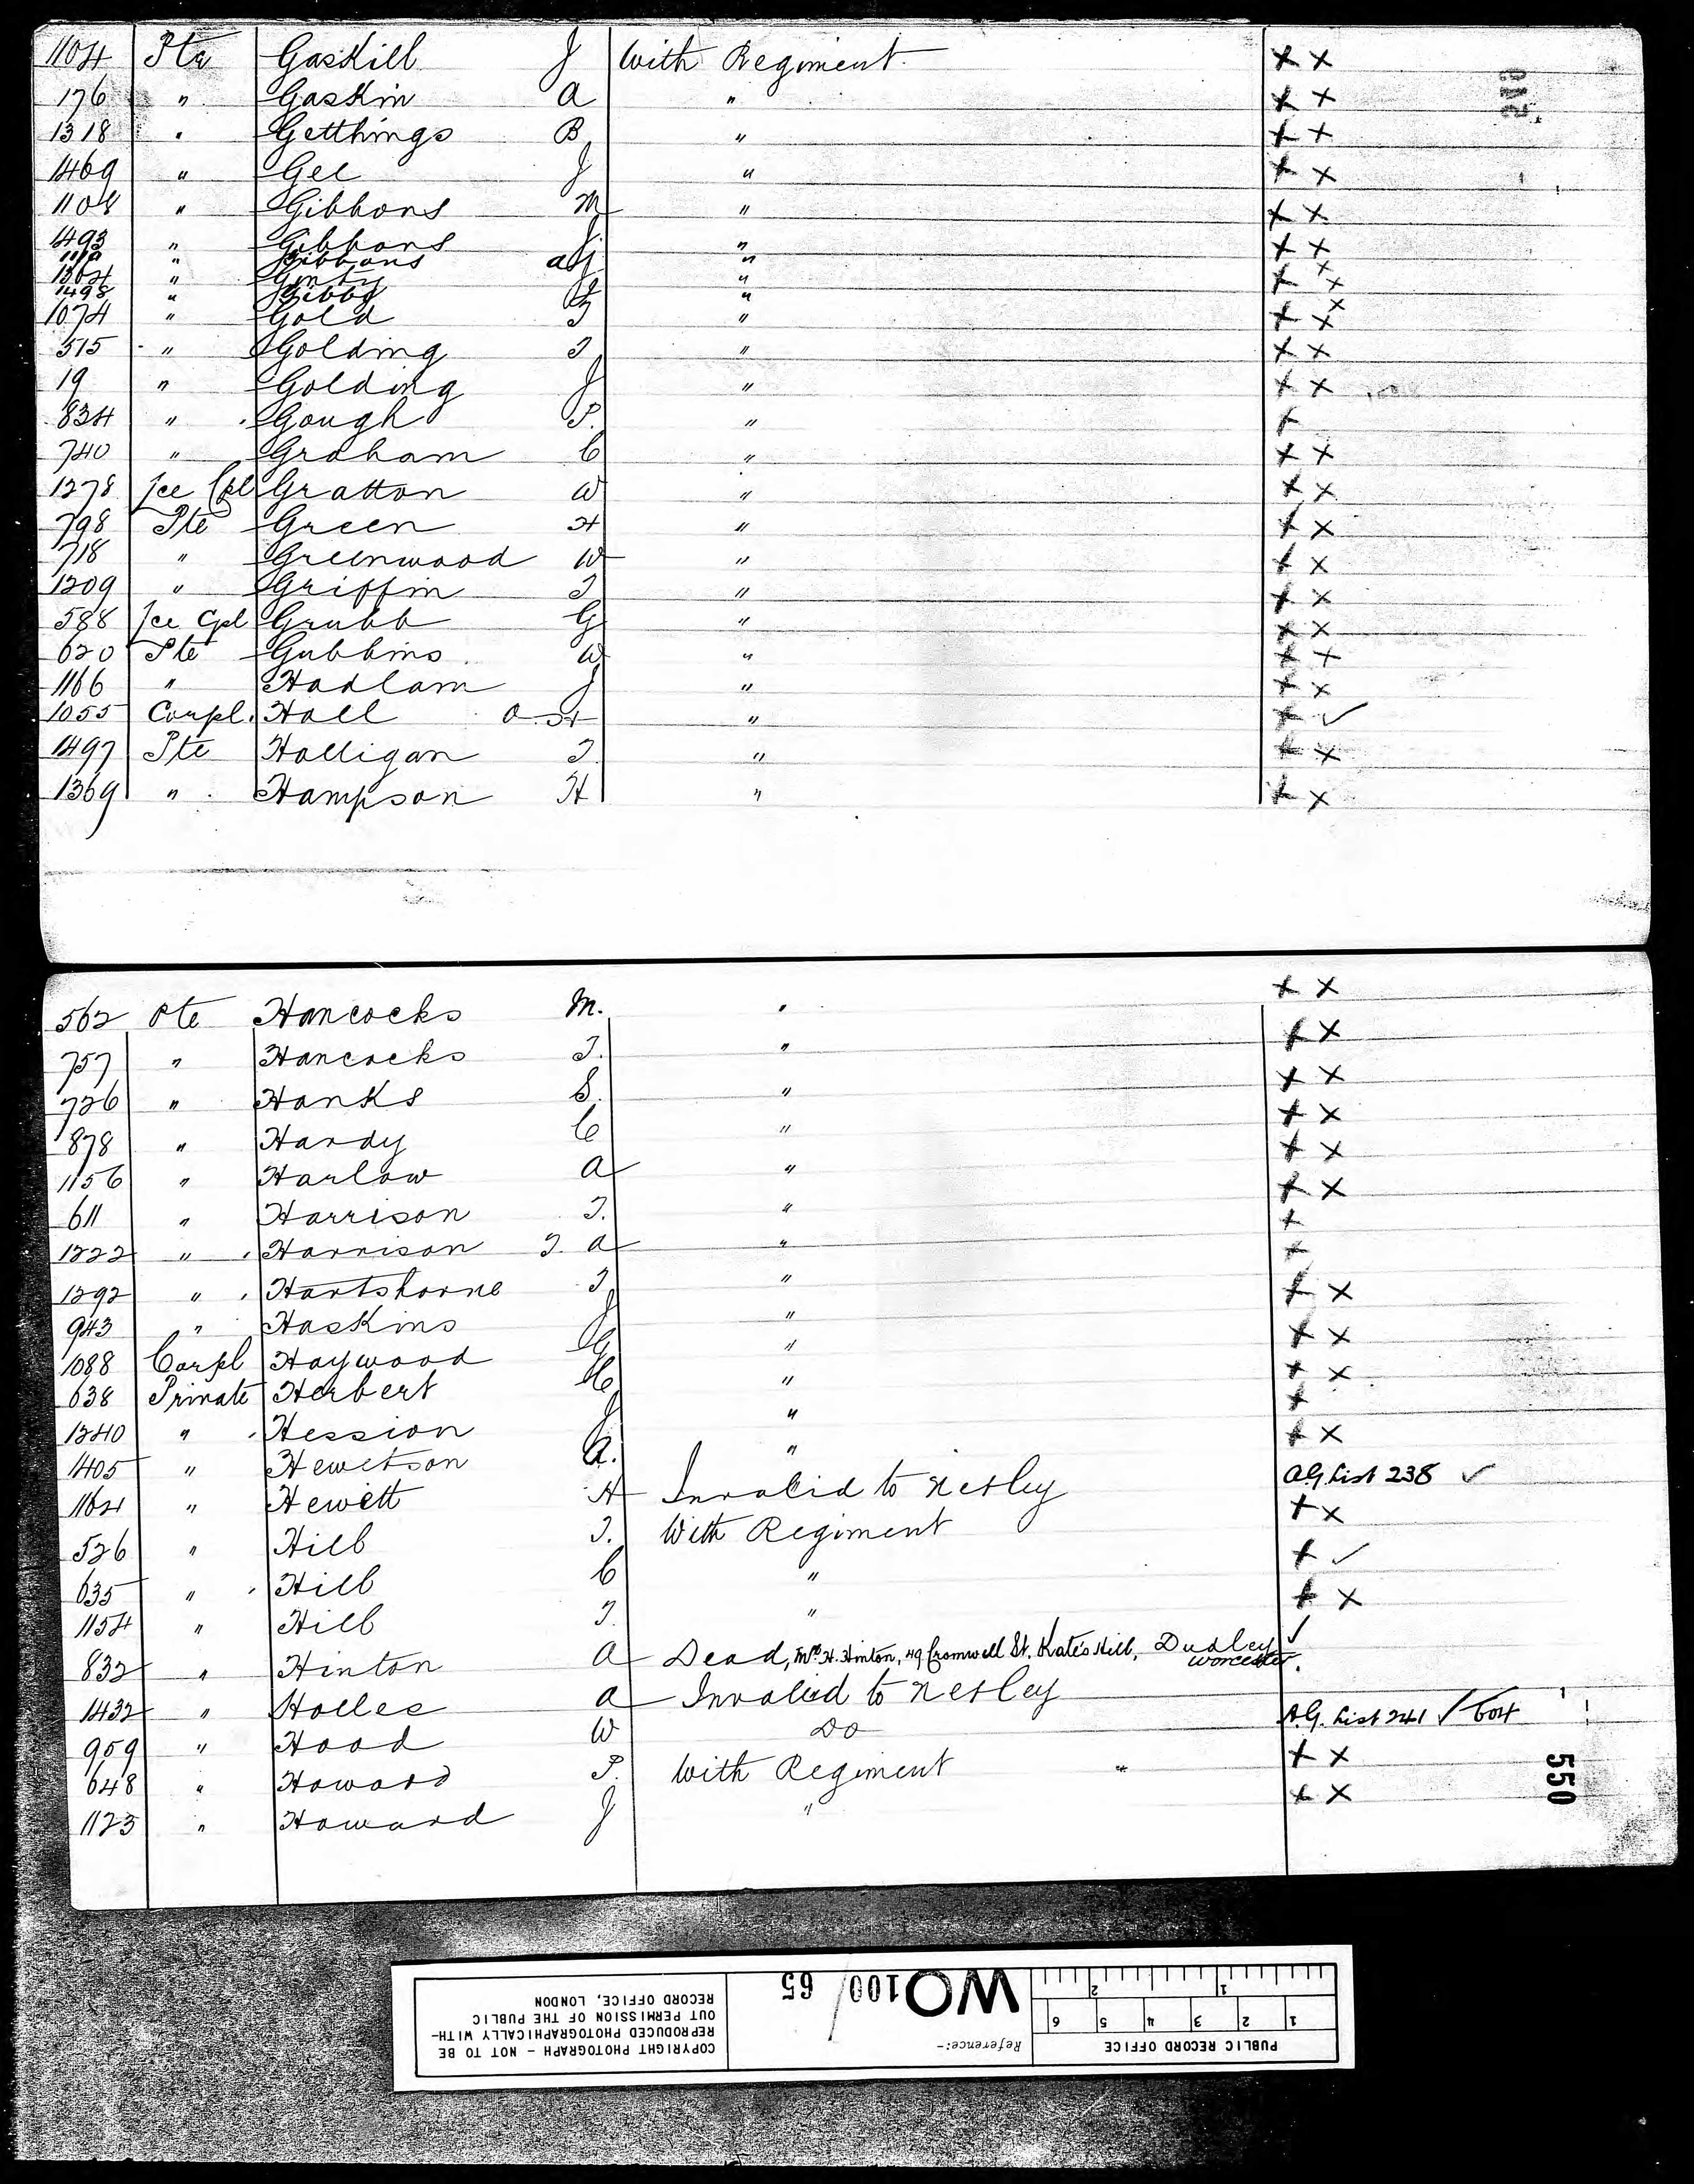 1104 Pte Gaskill J With Regiment ××
176 " Gaskin A " ××
1318 " Getthings B " ××
1469 " Gee J " ××
1108 " Gibbons M " ××
493 " Gibbons J " ××
" Gibbons A J " ×
1364 " Ginty " ××
1498 " Gibbs " ×
1074 " Gold T " ××
515 " Golding T " ××
19 " Golding J " ××
834 " Gough P. " ×
740 " Graham C " ××
1278 Lce Cpl Gratton W " ××
798 Pte Green H " ××
718 " Greenwood W " ××
1209 " Griffin T " ××
588 Lce Cpl Grubb G " ××
620 Pte Gubbins W " ××
1166 " Hadlam J " ××
1055 Corpl. Hall O. H " × ✓
1497 Pte Halligan T " ××
1369 " Hampson H " ××
562 Pte Hancocks M. " ××
757 " Hancocks T. " ××
726 " Hanks S. " ××
878 " Hardy C " ××
1156 " Harlow A " ××
611 " Harrison T. " ××
1222 " Harrison T. A " ×
1292 " Hartshorne T " ×
943 " Haskins J " ××
1088 Corpl Haywood G " ××
638 Private Herbert " ××
1240 " Hession J " ×
1405 " Hewetson A. " ××
1164 " Hewett H Invalid to Netley A.G. List 238 ✓
526 " Hill T. With Regiment ××
635 " Hill C " × ✓
1154 " Hill T. " ××
832 " Hinton A Dead, Mrs H. Hinton, 49 Cromwell St. Kate's Hill, Dudley ✓
Worcester.
1432 " Holles A Invalid to Netley
959 " Hood W Do A.G. List 241 ✓ 604
648 " Howard P. With Regiment " ××
1123 " Howard J " ××
550
PUBLIC RECORD OFFICE
1 2 3 4 5 6
1 2
Reference:-
WO 100/65
COPYRIGHT PHOTOGRAPH - NOT TO BE
REPRODUCED PHOTOGRAPHICALLY WITH-
OUT PERMISSION OF THE PUBLIC
RECORD OFFICE, LONDON